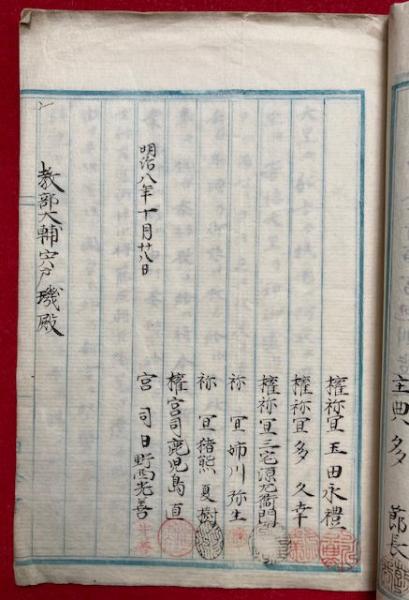 主典多 節長
権祢宜 玉田永禮
権祢宜 多 久幸
権祢宜 三宅源左衛門
祢宜 姉川弥生
祢宜 猪熊夏樹
権宮司 鹿児島 直
宮司 日野西光善
明治八年十月廿八日
教部大輔宍戸璣殿